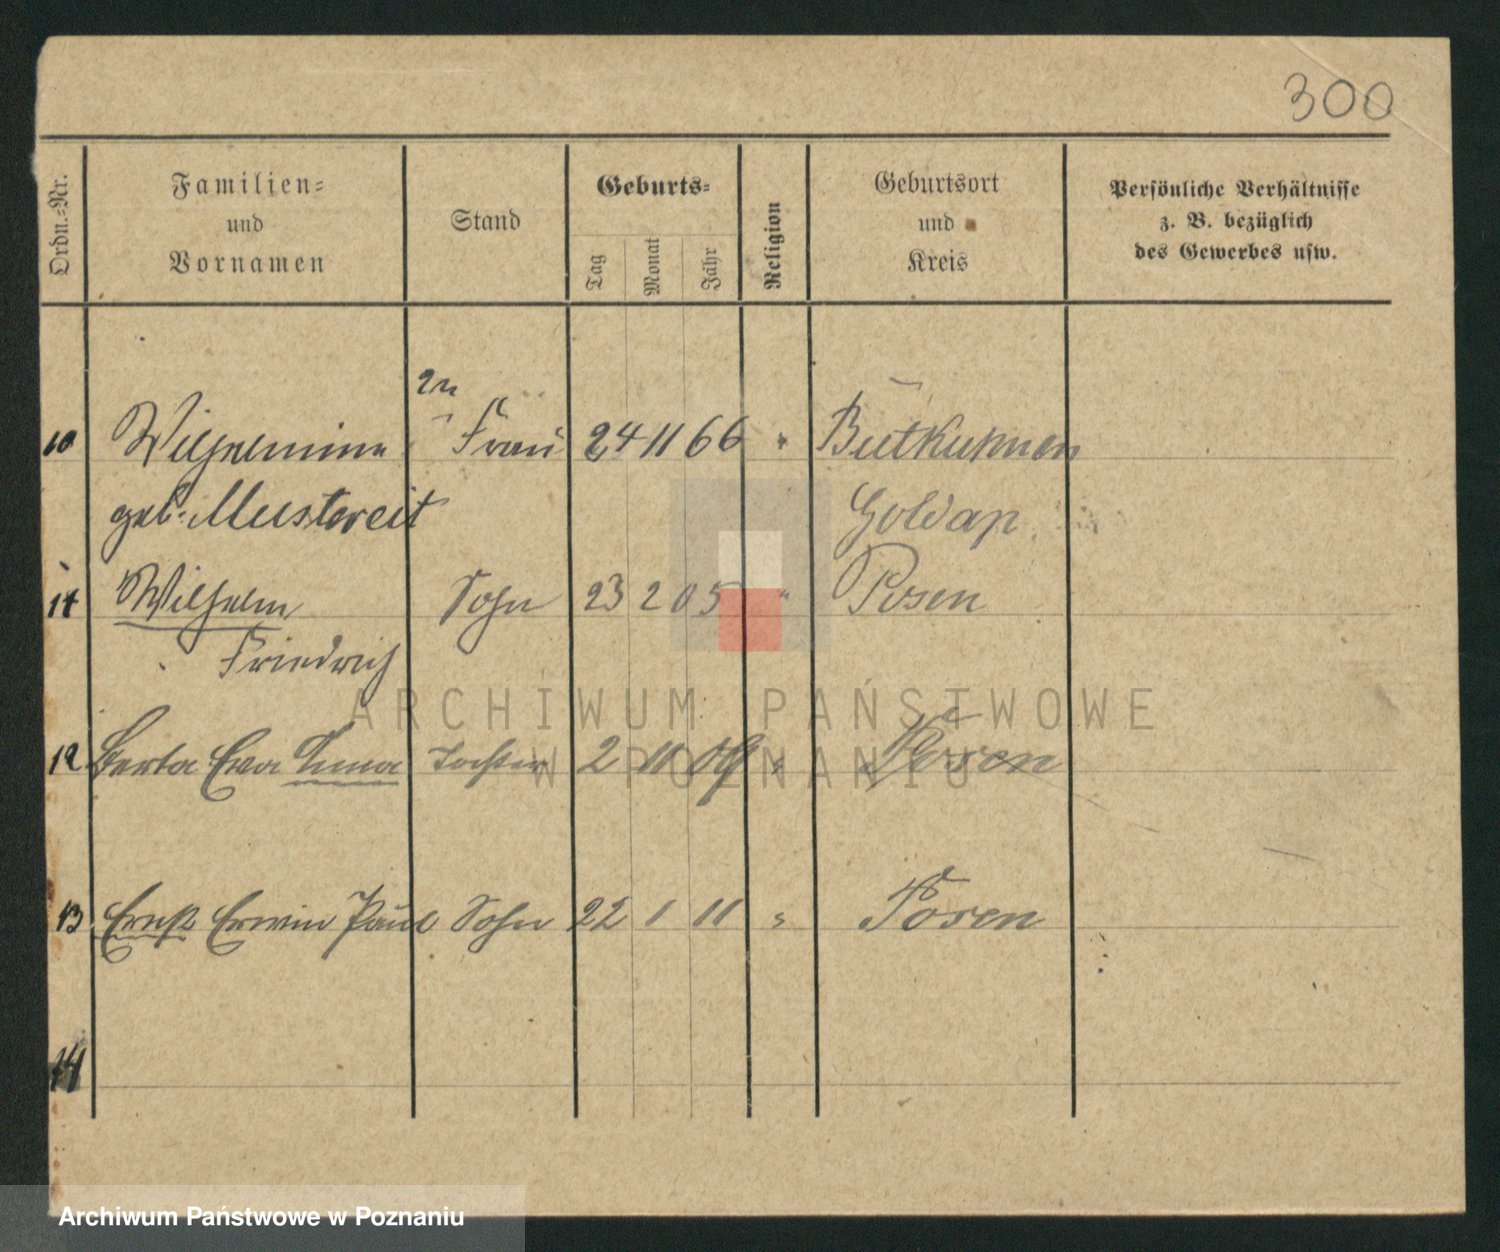 300
Ordn.=Nr.
Familien=
und
Vornamen
Stand
Geburts=
Tag
Monat
Jahr
Religion
Geburtsort
und
Kreis
Persönliche Verhältnisse
z. B. bezüglich
des Gewerbes usw.
10 Wilhelmine 2n Frau 24 11 66 " Butkuhnen
geb. Mustereit Goldap
11 Wilhelm Sohn 23 2 05 " Posen
Friedrich
12 Berta Eva Anna Tochter 2 11 09 " Posen
13 Ernst Erwin Paul Sohn 22 1 11 " Posen
14
ARCHIWUM PAŃSTWOWE
W POZNANIU
Archiwum Państwowe w Poznaniu